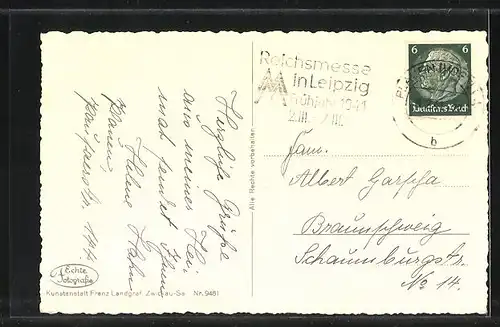 Herzliche Grüße
aus meiner Hei-
mat sendet Ihnen
Helene Hahn
Plauen
Echte
Fotografie
Kunstanstalt Franz Landgraf, Zwickau-Sa. Nr. 9451
Alle Rechte vorbehalten
Reichsmesse
in Leipzig
Frühjahr 1941
2.III.-7.III.
b
6 6
Deutsches Reich
Fam.
Albert Garssa
Braunschweig
Schaumburgstr.
No 14.